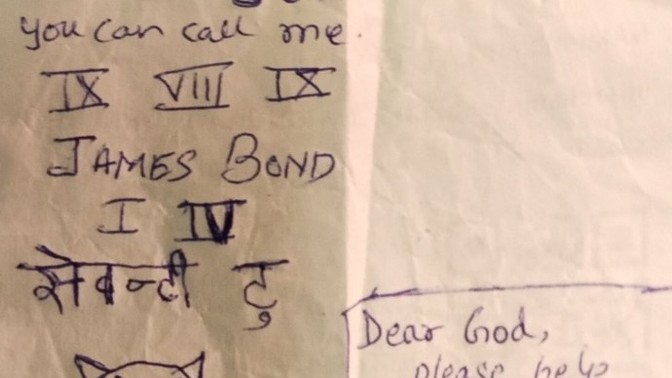 you can call me.
IX VIII IX
JAMES BOND
I IV
सेवन्टी टु
Dear God,
please help